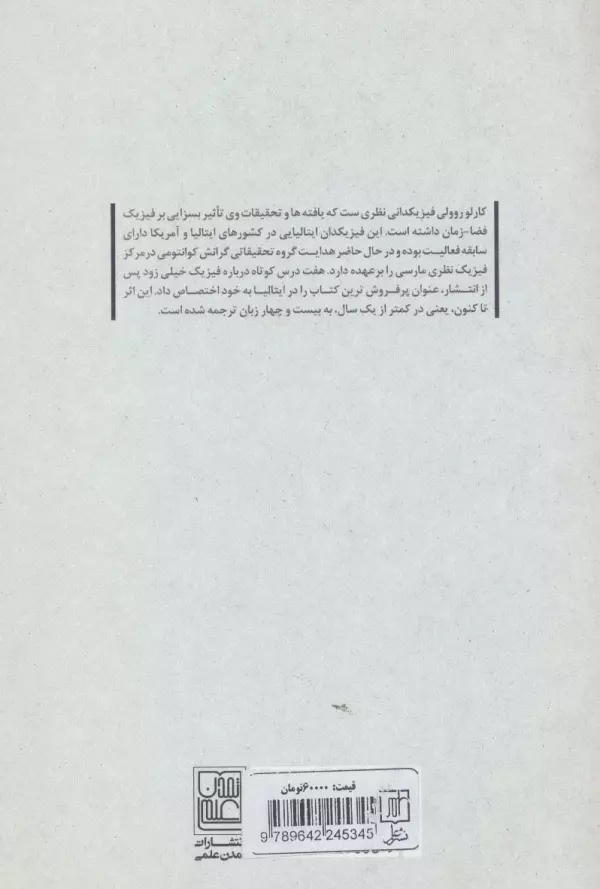 کارلو روولی فیزیکدانی نظری ست که یافته ها و تحقیقات وی تأثیر بسزایی بر فیزیک
فضا-زمان داشته است. این فیزیکدان ایتالیایی در کشورهای ایتالیا و آمریکا دارای
سابقه فعالیت بوده و در حال حاضر هدایت گروه تحقیقاتی گرانش کوانتومی در مرکز
فیزیک نظری مارسی را بر عهده دارد. هفت درس کوتاه درباره فیزیک خیلی زود پس
از انتشار، عنوان پرفروش ترین کتاب را در ایتالیا به خود اختصاص داد. این اثر
تا کنون، یعنی در کمتر از یک سال، به بیست و چهار زبان ترجمه شده است.
قیمت: ۶۰۰۰۰تومان
9 789642 245345
تمدن
علمی
نتشارات
مدن علمی